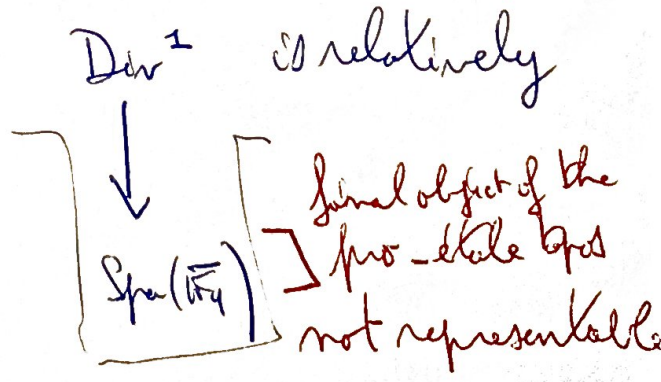 Div¹ is relatively
↓
final object of the
Spa(F̅_q) pro-étale topos
not representable